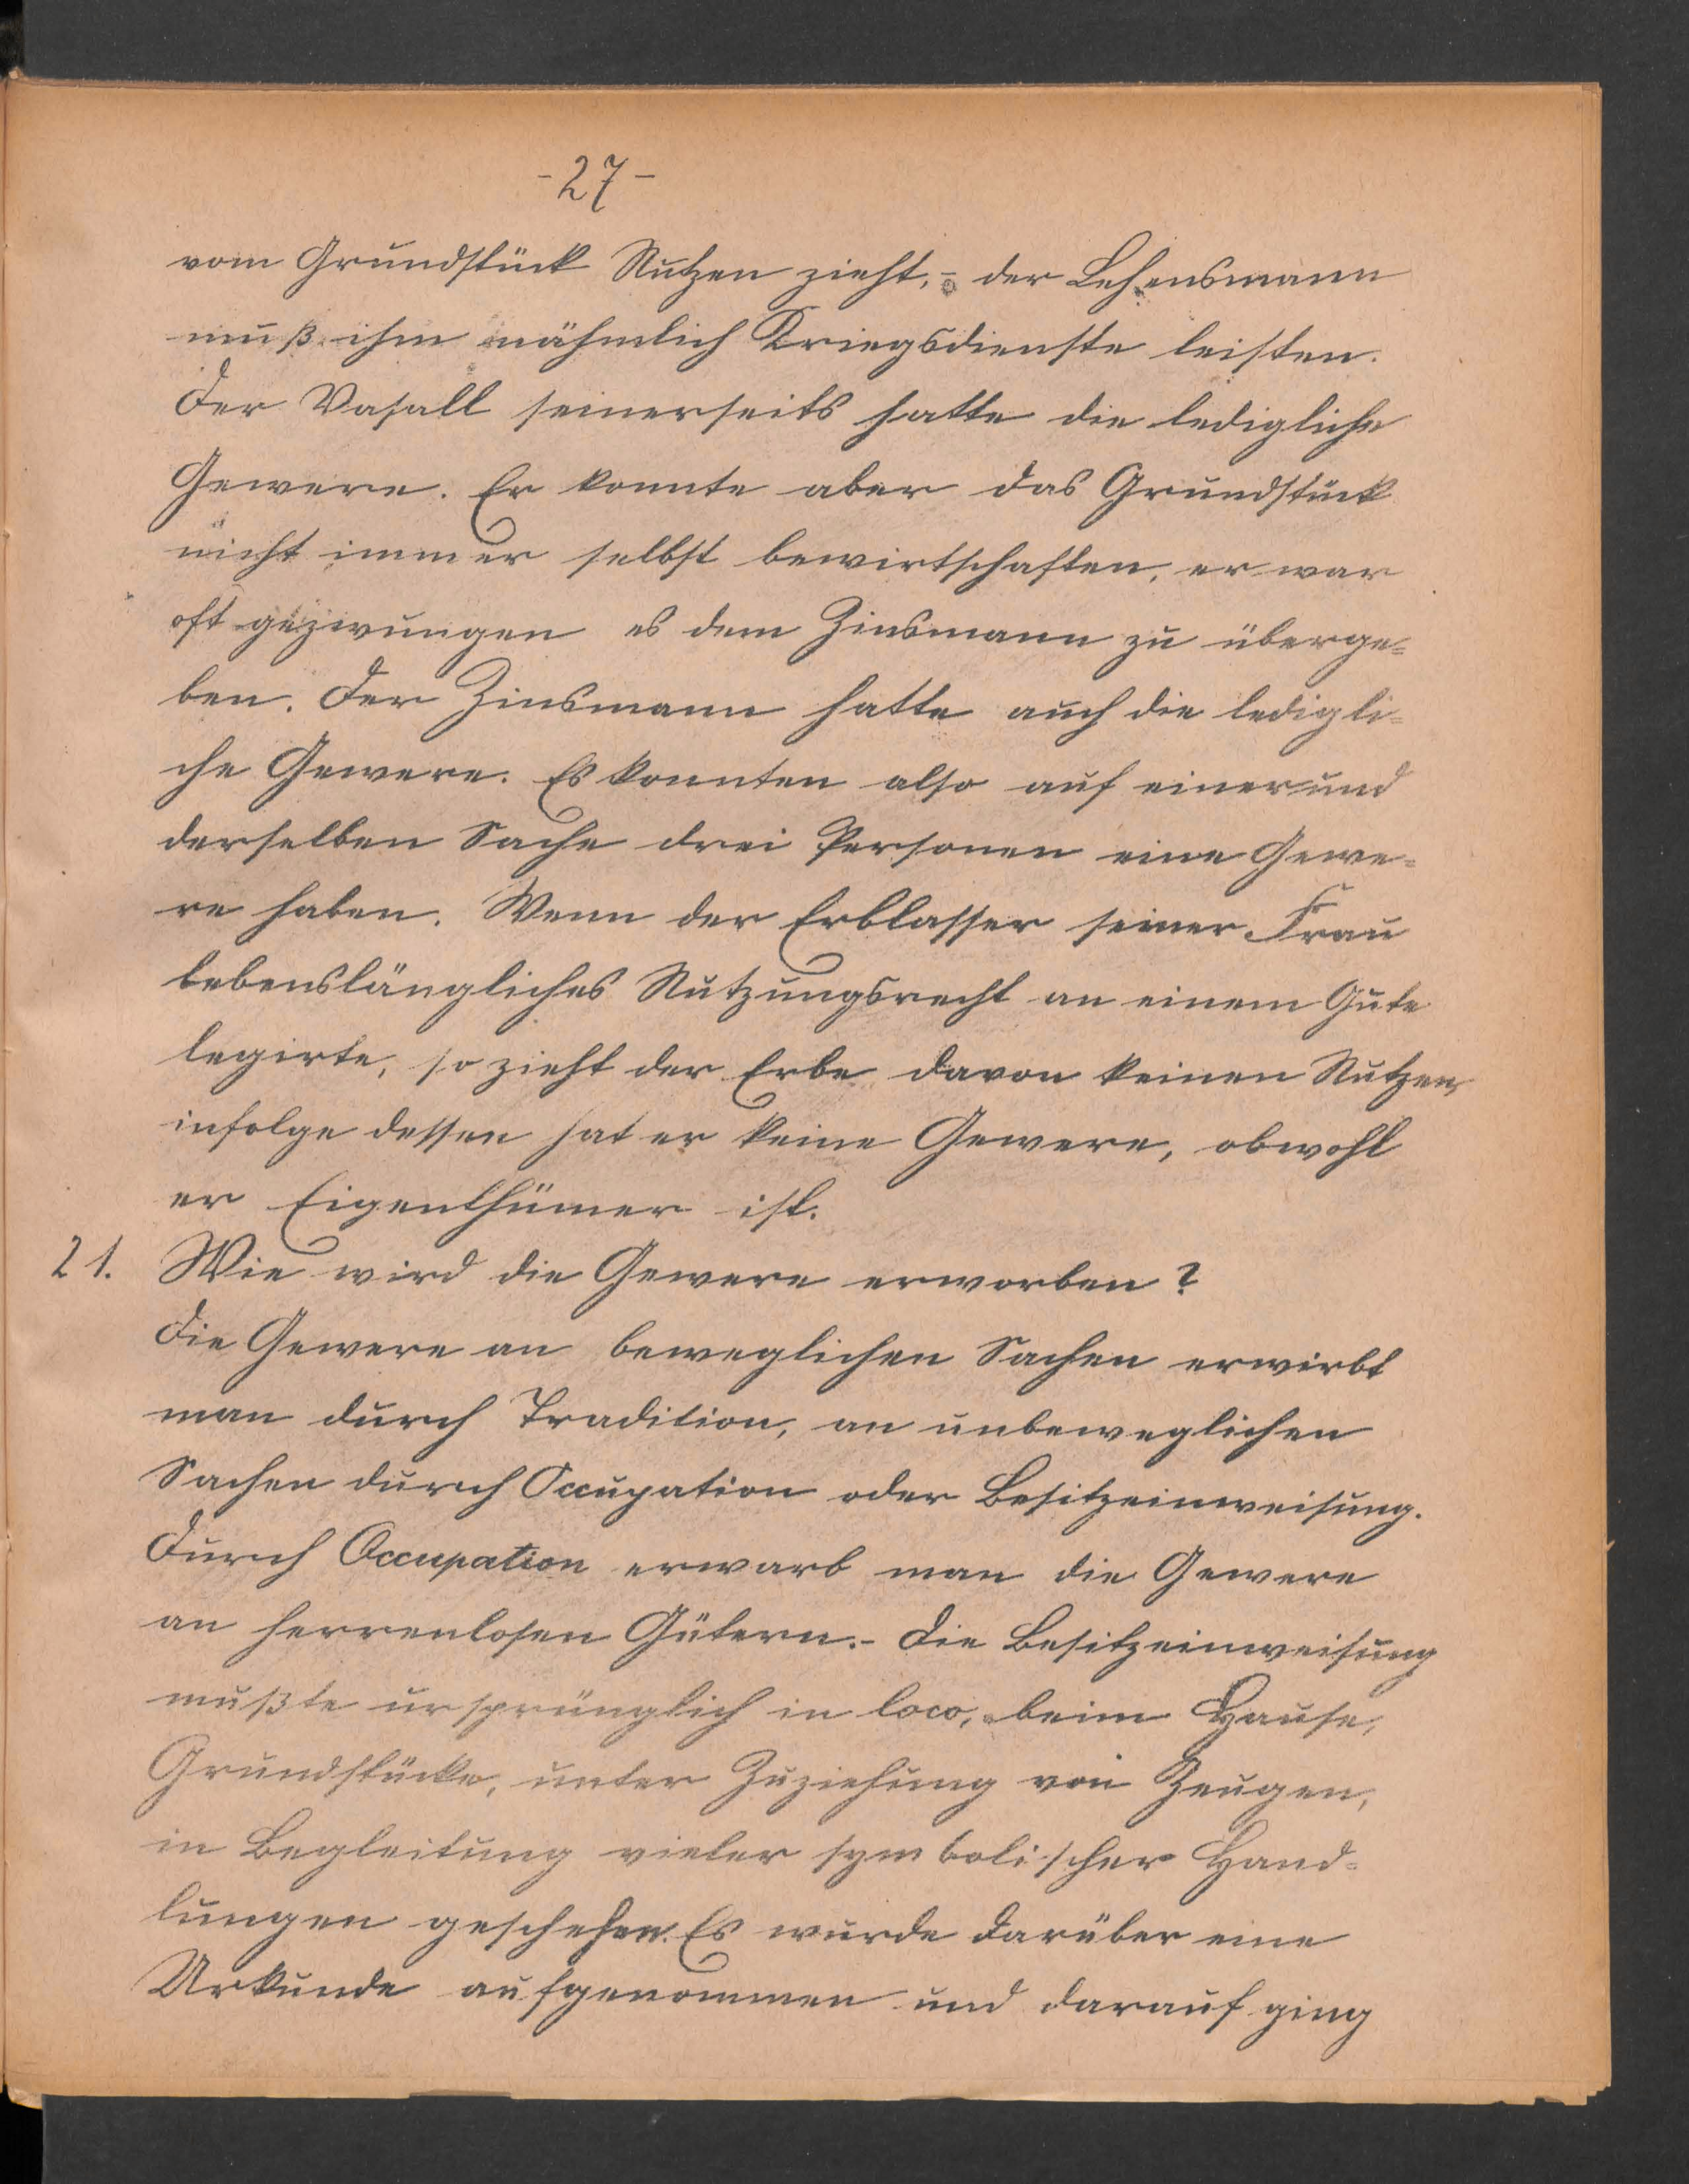 - 27 -
vom Grundstück Nutzen zieht, - der Lehensmann
muß ihm nähmlich Kriegsdienste leisten.
Der Vasall seinerseits hatte die ledigliche
Gewere. Er konnte aber das Grundstück
nicht immer selbst bewirtschaften, er war
oft gezwungen es dem Zinsmann zu überge=
ben. Der Zinsmann hatte auch die ledigli=
che Gewere. Es konnten also auf einer und
derselben Sache drei Personen eine Gewe=
re haben. Wenn der Erblasser seiner Frau
lebenslängliches Nutzungsrecht an einem Gute
legirte, so zieht der Erbe davon keinen Nutzen,
infolge dessen hat er keine Gewere, obwohl
er Eigenthümer ist.
21. Wie wird die Gewere erworben?
Die Gewere an beweglichen Sachen erwirbt
man durch Tradition, an unbeweglichen
Sachen durch Occupation oder Besitzeinweisung.
Durch Occupation erwarb man die Gewere
an herrenlosen Gütern. - Die Besitzeinweisung
mußte ursprünglich in loco, beim Hause,
Grundstücke, unter Zuziehung von Zeugen,
in Begleitung vieler symbolischer Hand=
lungen geschehen. Es wurde darüber eine
Urkunde aufgenommen und darauf ging